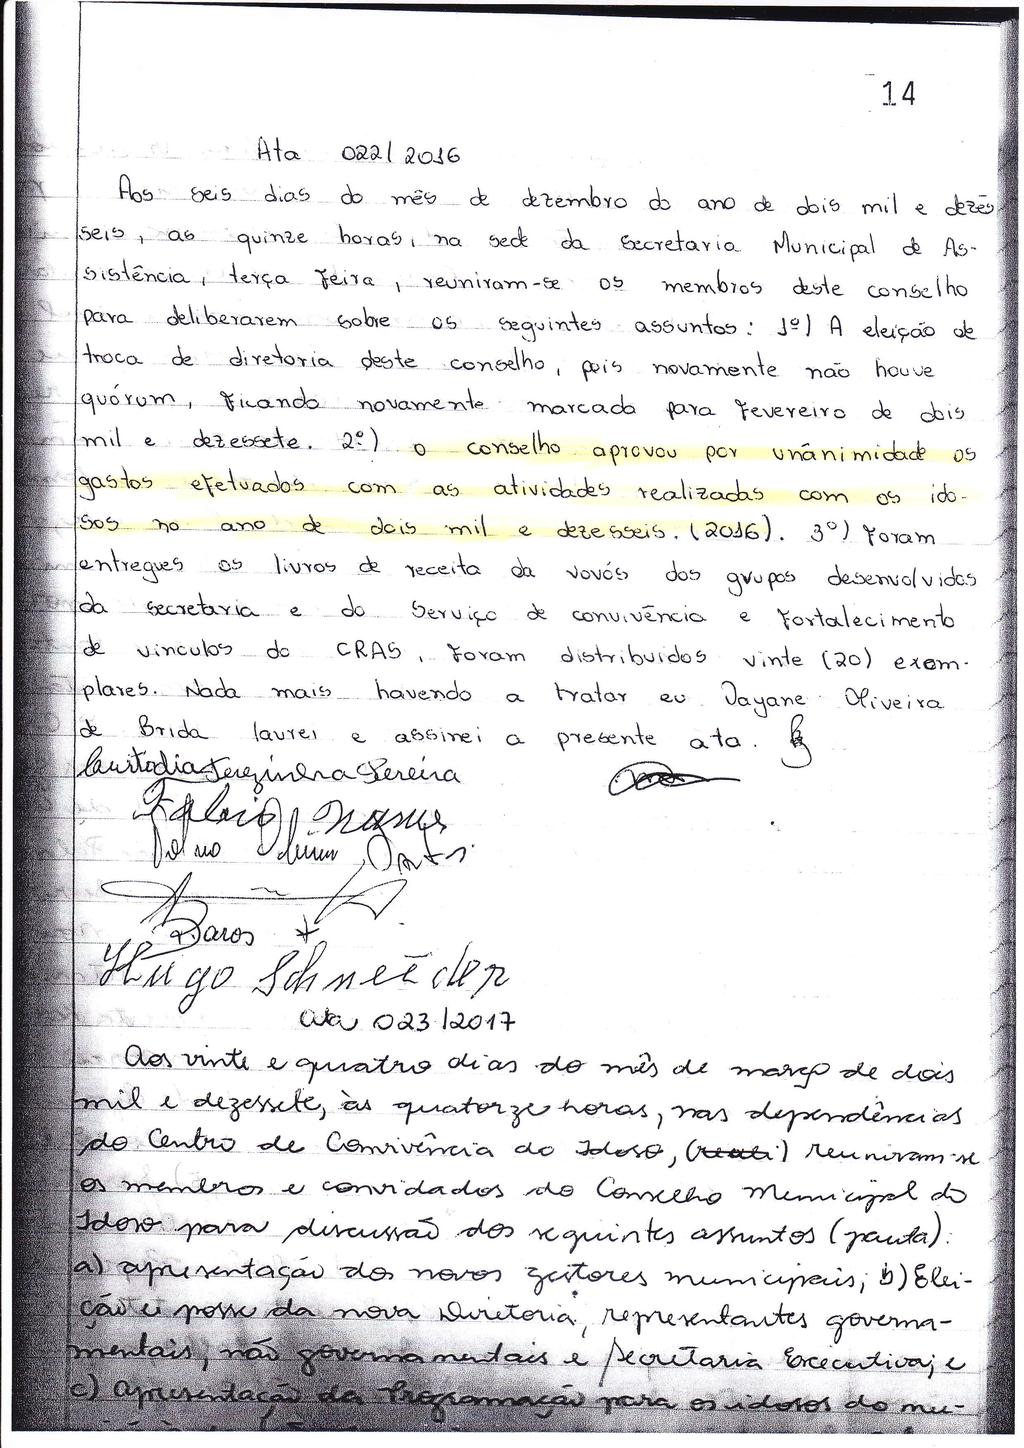 14
Ata 022/2016
Aos seis dias do mês de dezembro do ano de dois mil e dezes
seis, as quinze horas, na sede da Secretaria Municipal de As-
sistência, terça feira, reuniram-se os membros deste conselho
para deliberarem sobre os seguintes assuntos: 1º) A eleição de
troca de diretoria deste conselho, pois novamente não houve
quórum, ficando novamente marcada para fevereiro de dois
mil e dezessete. 2º) o conselho aprovou por unânimidade os
gastos efetuados com as atividades realizadas com os ido-
sos no ano de dois mil e dezesseis. (2016). 3º) foram
entregues os livros de receita da vovós dos grupos desenvolvidos
da secretaria e do Serviço de convivência e Fortalecimento
de vinculos do CRAS, foram distribuidos vinte (20) exem-
plares. Nada mais havendo a tratar eu Dayane Oliveira
de Brida lavrei e assinei a presente ata.
Custodia Terezinha Pereira
Hugo Schneider
Ata 023/2017
Aos vinte e quatro dias do mês de março de dois
mil e dezessete, às quatorze horas, nas dependências
do Centro de Convivência do Idoso, (reali) reuniram-se
os membros e convidados do Conselho Municipal do
Idoso para discussão dos seguintes assuntos (pauta):
a) apresentação dos novos gestores municipais; b) Elei-
ção e posse da nova Diretoria, representantes governa-
mentais, não governamentais e Secretaria Executiva; e
c) apresentação da Programação para os idosos do mu-